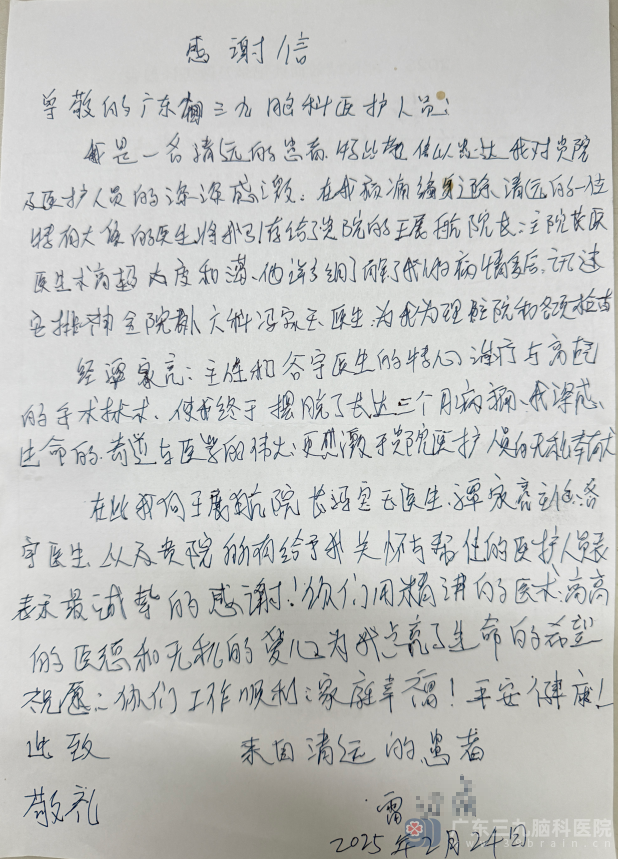 感谢信
尊敬的广东三九脑科医护人员:
我是一名清远的患者,特此致信以表达我对贵院
及医护人员的深深感激。在我病痛缠身之际,清远的一位
特有大爱的医生将我引荐给了贵院的王展航院长。王院长医
医生术高超、态度和蔼。他详细了解了我的病情后,迅速
安排神全院 六科冯家玉医生,为我办理住院和各项检查
经谭家亮主任和谷宇医生的精心治疗与高超
的手术技术,使我终于摆脱了长达三个月病痛,我深感
生命的奇迹与医学的伟大,更感激于贵院医护人员的无私奉献
在此我向王展航院长冯 玉医生、谭家亮主任、谷
宇医生,以及贵院的所有给予我关怀与帮住的医护人员表
表示最诚挚的感谢!你们用精湛的医术、高高
的医德和无私的爱心,为我点亮了生命的希望
祝愿:你们工作顺利:家庭幸福!平安健康!
此致 来自清远的患者
敬礼
雷
2025年2月24日
广东三九脑科医院
999brain.com